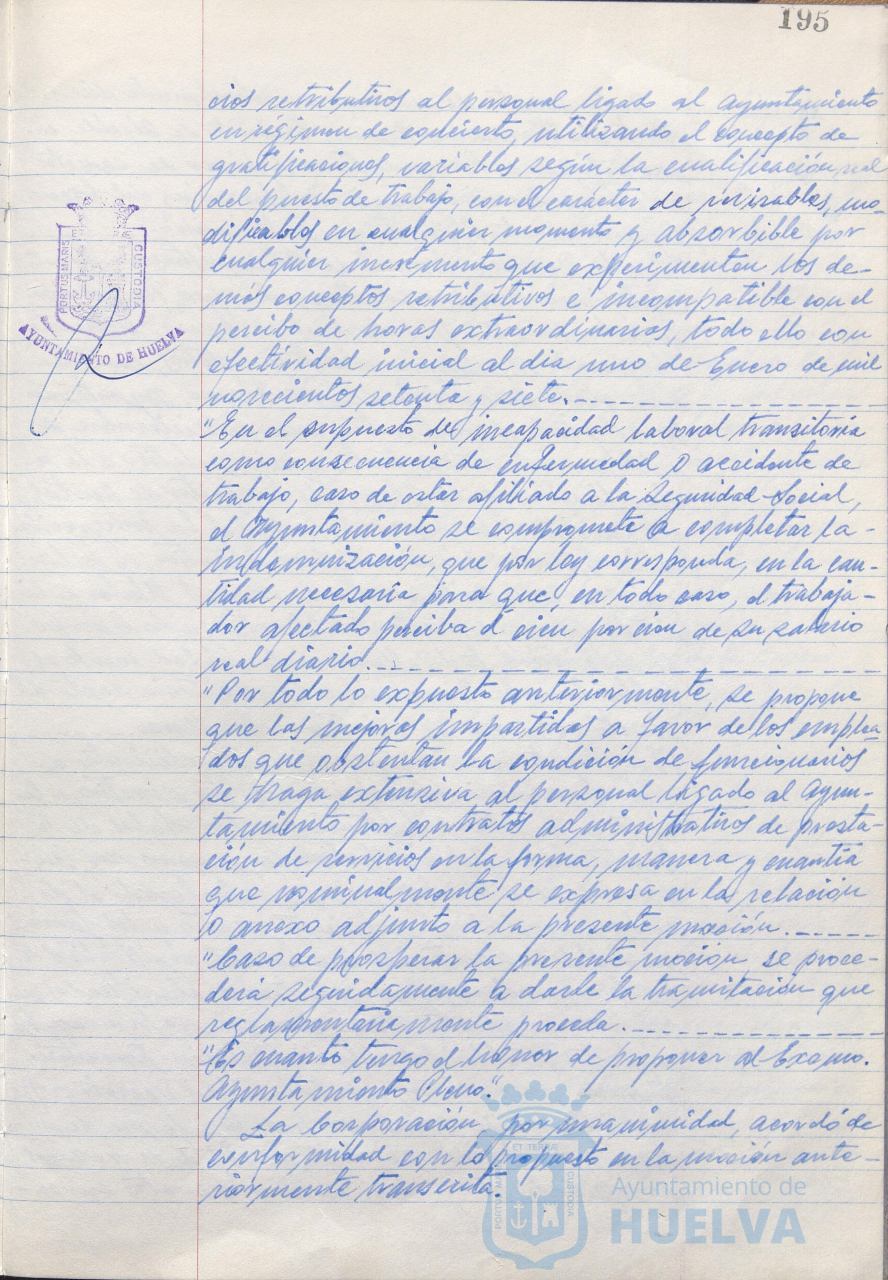 195
cios retributivos al personal ligado al Ayuntamiento
en régimen de concierto, utilizando el concepto de
gratificaciones, variables según la cualificación real
del puesto de trabajo, con el carácter de revisables, mo-
dificables en cualquier momento y absorbible por
cualquier incremento que experimenten los de-
más conceptos retributivos e incompatible con el
percibo de horas extraordinarias, todo ello con
efectividad inicial al dia uno de Enero de mil
novecientos setenta y siete.
"En el supuesto de incapacidad laboral transitoria
como consecuencia de enfermedad o accidente de
trabajo, caso de estar afiliado a la Seguridad Social,
el Ayuntamiento se compromete a completar la
indemnización, que por ley corresponda, en la can-
tidad necesaria para que, en todo caso, el trabaja-
dor afectado perciba el cien por cien de su salario
real diario.
"Por todo lo expuesto anteriormente, se propone
que las mejoras impartidas a favor de los emplea-
dos que ostentan la condición de funcionarios
se haga extensiva al personal ligado al Ayun-
tamiento por contratos administrativos de presta-
ción de servicios en la forma, manera y cuantía
que nominalmente se expresa en la relación
o anexo adjunto a la presente moción.
"Caso de prosperar la presente moción, se proce-
derá seguidamente a darle la tramitación que
reglamentariamente proceda.
"Es cuanto tengo el honor de proponer al Excmo.
Ayuntamiento Pleno."
La Corporación, por unanimidad, acordó de
conformidad con lo propuesto en la moción ante-
riormente transcrita.
PORTUS MARIS
CUSTODIA
AYUNTAMIENTO DE HUELVA
ET TERRA
PORTUS MARIS
CUSTODIA
Ayuntamiento de
HUELVA